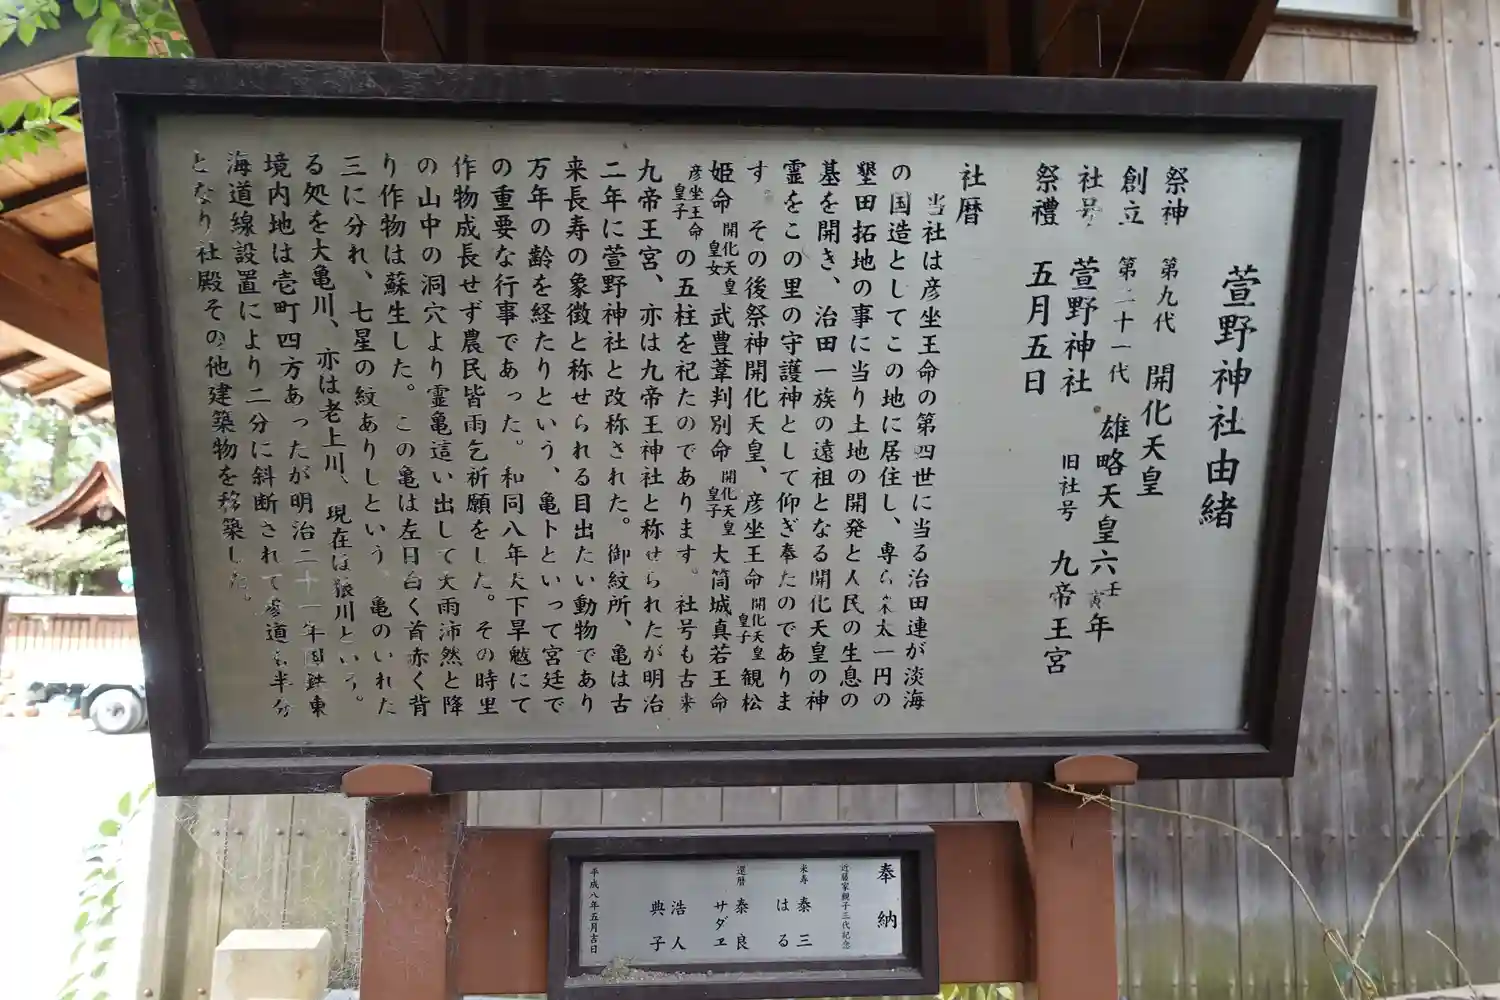 萱野神社由緒
祭神 第九代 開化天皇
創立 第二十一代 雄略天皇六壬寅年
社号 萱野神社 旧社号 九帝王宮
祭禮 五月五日
社暦
当社は彦坐王命の第四世に当る治田連が淡海
の国造としてこの地に居住し、専ら 太一円の
墾田拓地の事に当り土地の開発と人民の生息の
基を開き、治田一族の遠祖となる開化天皇の神
霊をこの里の守護神として仰ぎ奉たのでありま
す その後祭神開化天皇、彦坐王命 開化天皇皇子 観松
姫命 開化天皇皇女 武豊葦判別命 開化天皇皇子 大筒城真若王命
彦坐王命皇子 の五柱を祀たのであります。社号も古来
九帝王宮、亦は九帝王神社と称せられたが明治
二年に萱野神社と改称された。御紋所、亀は古
来長寿の象徴と称せられる目出たい動物であり
万年の齢を経たりという、亀卜といって宮廷で
の重要な行事であった。和同八年天下旱魃にて
作物成長せず農民皆雨乞祈願をした。その時里
の山中の洞穴より霊亀這い出して大雨沛然と降
り作物は蘇生した。この亀は左目白く首赤く背
三に分れ、七星の紋ありしという、亀のいれた
る処を大亀川、亦は老上川、現在は狼川という。
境内地は壱町四方あったが明治二十一年国鉄東
海道線設置により二分に斜断されて参道も半分
となり社殿その他建築物を移築した。
奉納
近藤家親子三代記念
米寿 泰三
はる
還暦 泰良
サダヱ
浩人
典子
平成八年五月吉日